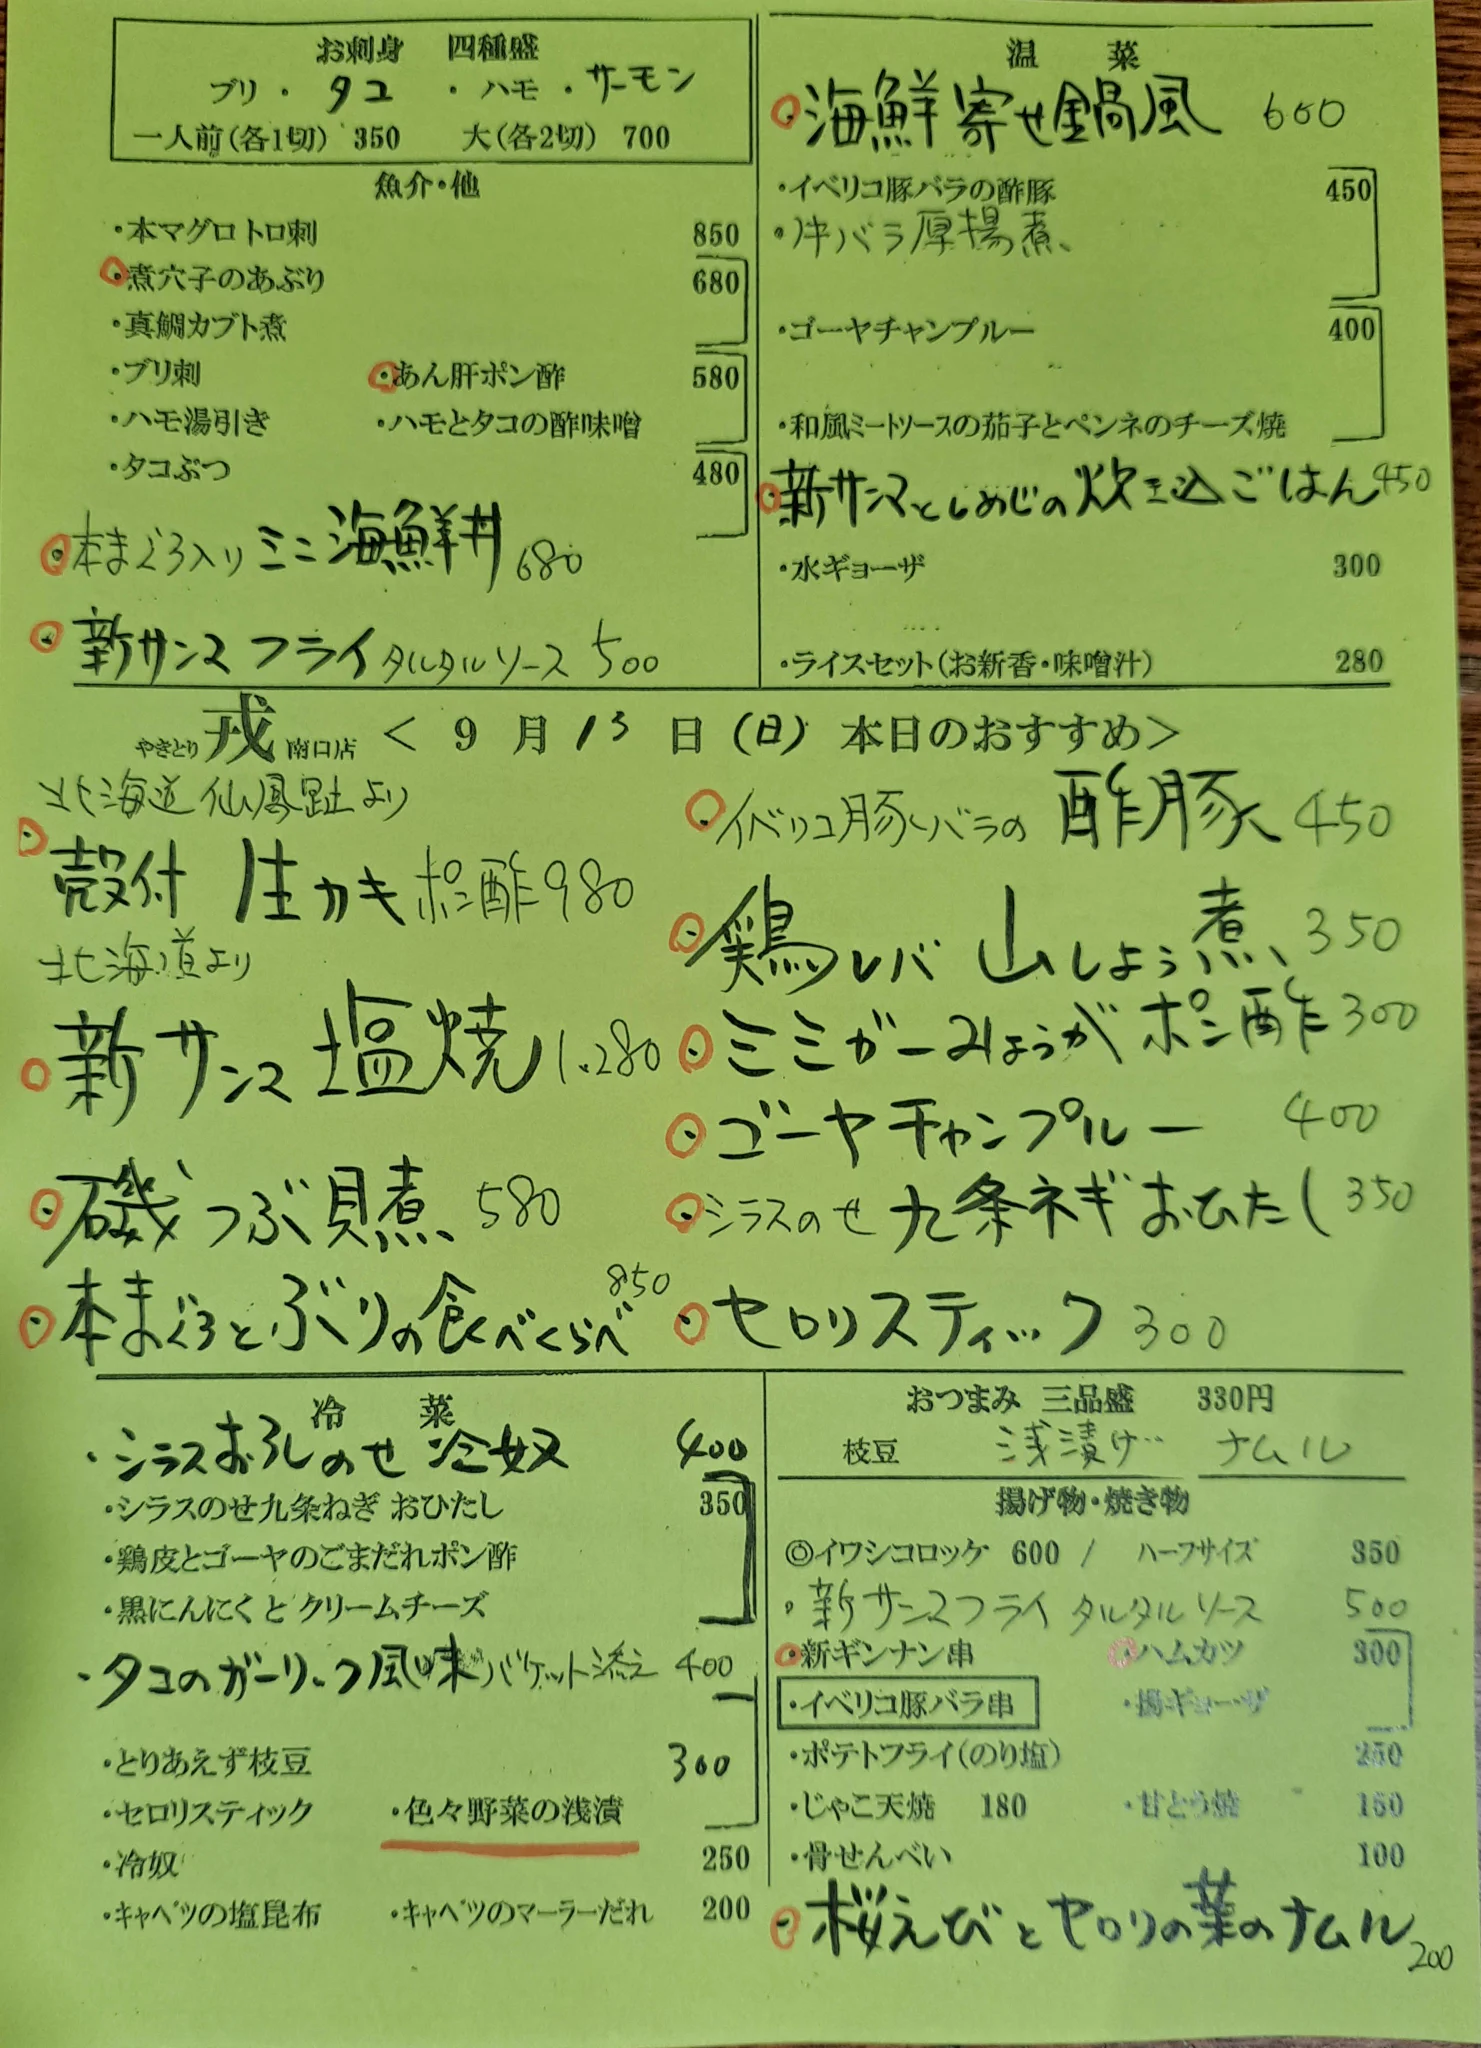 お刺身 四種盛
ブリ・タコ・ハモ・サーモン
一人前(各1切) 350 大(各2切) 700
魚介・他
・本マグロトロ刺 850
・煮穴子のあぶり 680
・真鯛カブト煮
・ブリ刺 ・あん肝ポン酢 580
・ハモ湯引き ・ハモとタコの酢味噌
・タコぶつ 480
・本まぐろ入り ミニ海鮮丼 680
・新サンマ フライ タルタルソース 500
温菜
・海鮮寄せ鍋風 600
・イベリコ豚バラの酢豚 450
・牛バラ厚揚煮
・ゴーヤチャンプルー 400
・和風ミートソースの茄子とペンネのチーズ焼
・新サンマとしめじの炊き込ごはん 450
・水ギョーザ 300
・ライスセット(お新香・味噌汁) 280
やきとり 戎 南口店 <9月13日(日) 本日のおすすめ>
北海道仙鳳趾より
・殻付 生カキ ポン酢 980
北海道より
・新サンマ 塩焼 1.280
・磯つぶ貝煮 580
・本まぐろとぶりの食べくらべ 850
・イベリコ豚バラの 酢豚 450
・鶏レバ 山しょう煮 350
・ミミガーみょうが ポン酢 300
・ゴーヤチャンプルー 400
・シラスのせ 九条ネギおひたし 350
・セロリスティック 300
冷菜
・シラスおろしのせ 冷奴 400
・シラスのせ九条ねぎ おひたし 350
・鶏皮とゴーヤのごまだれポン酢
・黒にんにくと クリームチーズ
・タコのガーリック風味 バゲット添え 400
・とりあえず枝豆 300
・セロリスティック ・色々野菜の浅漬
・冷奴 250
・キャベツの塩昆布 ・キャベツのマーラーだれ 200
おつまみ 三品盛 330円
枝豆 浅漬け ナムル
揚げ物・焼き物
◎イワシコロッケ 600 / ハーフサイズ 350
・新サンマフライ タルタルソース 500
・新ギンナン串 ・ハムカツ 300
・イベリコ豚バラ串 ・揚ギョーザ
・ポテトフライ(のり塩) 250
・じゃこ天焼 180 ・甘とう焼 150
・骨せんべい 100
・桜えびとセロリの葉のナムル 200